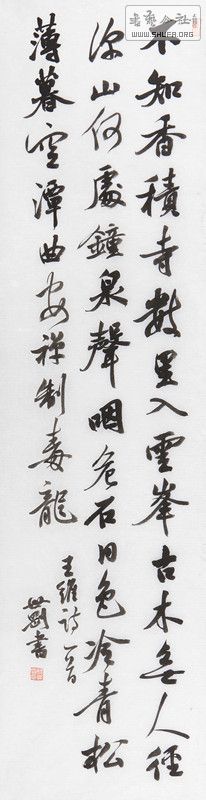 書藝公社
WWW.SHUFA.ORG
不知香積寺數里入雲峯古木無人徑
深山何處鐘泉聲咽危石日色冷青松
薄暮空潭曲安禪制毒龍
王維詩一首
世劉書